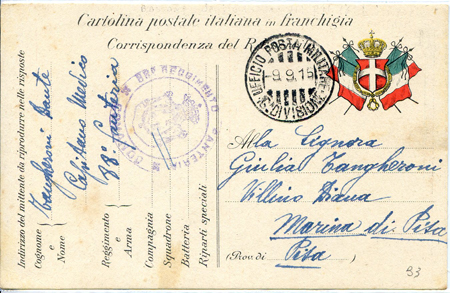 Cartolina postale italiana in franchigia
Corrispondenza del R
UFFICIO POSTA MILITARE
-9.9.15
DIVISIONE
Indirizzo del mittente da riprodurre nelle risposte
Cognome e Nome
Tangheroni Dante
Capitano Medico
Reggimento e Arma
88° fanteria
Compagnia
Squadrone
Batteria
Riparti speciali
REGGIMENTO FANTERIA
Alla Signora
Giulia Tangheroni
Villino Diana
Marina di Pisa
(Prov. di Pisa)
93